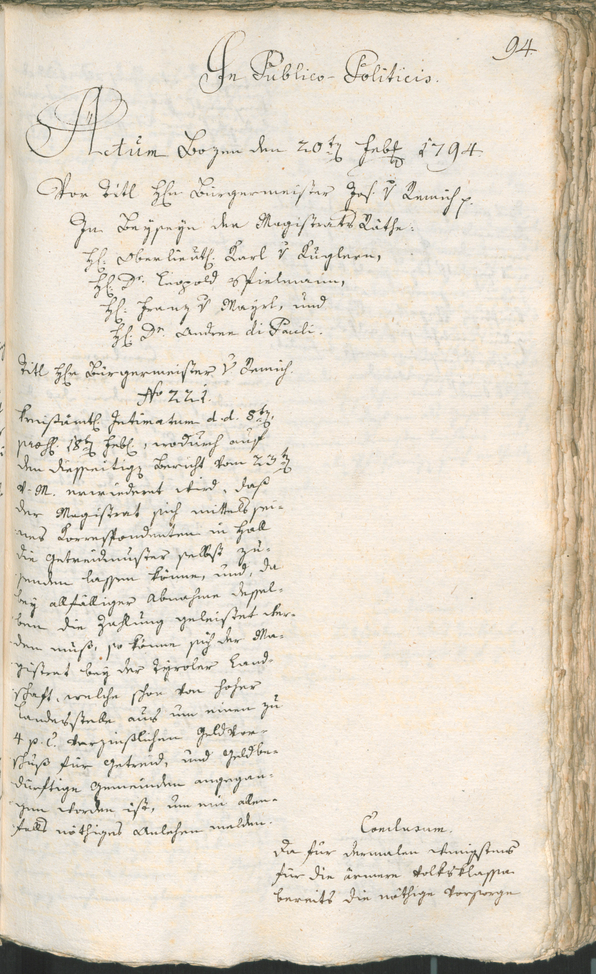 94
In Publico-Politicis.
Actum Bozen den 20ten Febr 1794
Vor Titl Hhn Bürgermeister Jos. v Remich p.
In Beyseyn der Magistrats Räthe:
H: Oberlieut: Karl v Kuglern,
H: Dr. Leopold Spielmann,
H: Franz v Mayrl, und
H: Dr. Andree di Pauli.
Titl Hhn Bürgermeister v Remich.
No 221.
Kreisämtl: Intimatum d.d. 8ten
praes: 18ten Feb:, wodurch auf
den diesseitigen Bericht vom 23ten
v. M. erwiedert wird, daß
der Magistrat sich mittels sei-
nes Korrespondenten in Hall
die Getreidmuster selbst zu-
senden lassen könne, und, da
bey allfälliger Abnahme dessel-
ben die Zahlung geleistet wer-
den muß, so könne sich der Ma-
gistrat bey der Tyroler Land-
schaft, welche schon von hoher
Landesstelle aus um einen zu
4 p. C. verzinslichen Geldvor-
schuß für Getreid, und Geldbe-
dürftige Gemeinden angegan-
gen worden ist, um ein allen-
falls nöthiges Anlehen melden.
Conclusum.
Da für dermalen wenigstens
für die ärmere Volksklasse
bereits die nöthige Vorsorge